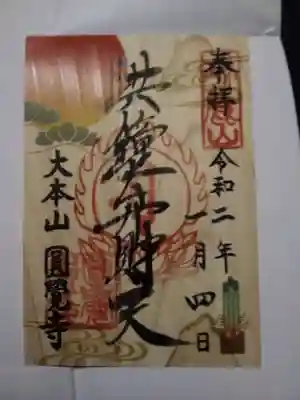 奉拝
令和二年
一月四日
洪鐘弁財天
大本山
圓覺寺